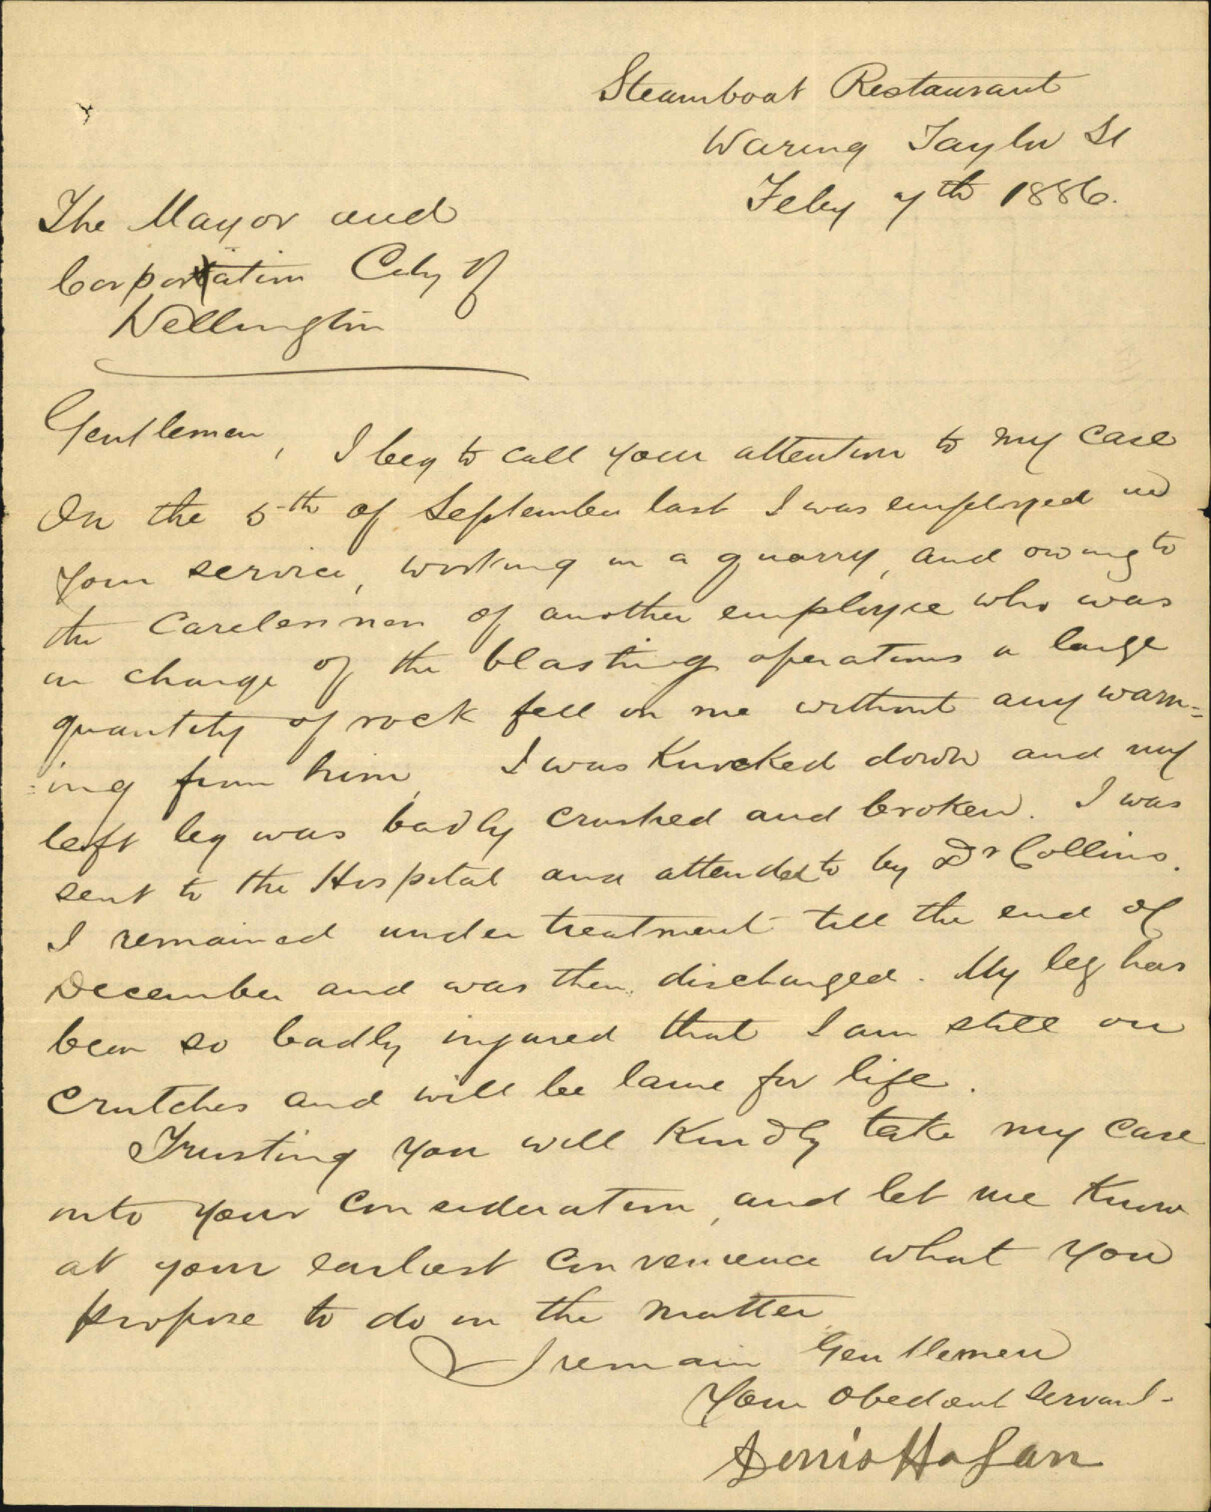 Steamboat Restaurant
Waring Taylor St
Feby 7th 1886.
The Mayor and
Corporation City of
Wellington
Gentlemen, I beg to call your attention to my case
On the 5th of September last I was employed in
your service, working in a quarry, and owing to
the carelessness of another employee who was
in charge of the blasting operations a large
quantity of rock fell on me without any warn=
=ing from him. I was Knocked down and my
left leg was badly crushed and broken. I was
sent to the Hospital and attended to by Dr Collins.
I remained under treatment till the end of
December and was then discharged. My leg has
been so badly injured that I am still on
crutches and will be lame for life.
Trusting you will Kindly take my case
into your consideration, and let me Know
at your earliest convenience what you
propose to do in the matter
I remain Gentlemen
Your obedient servant.
Denis Hogan